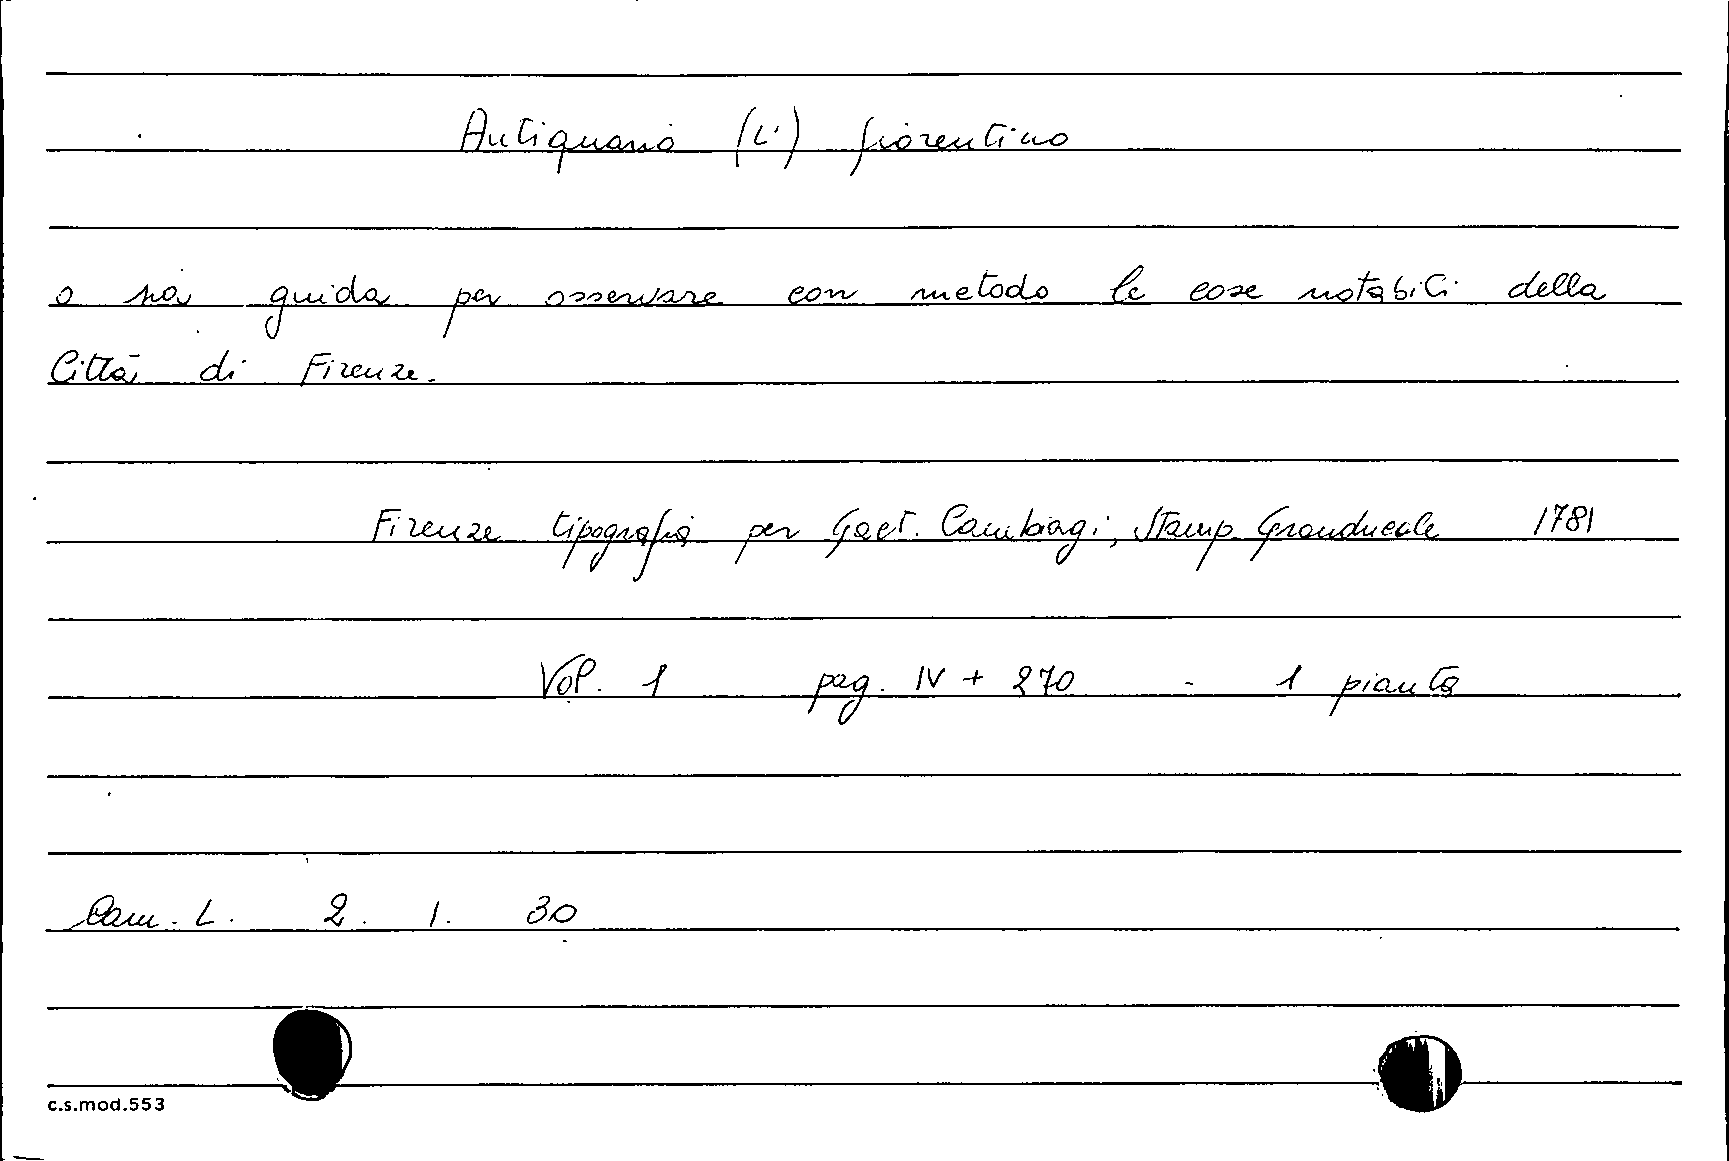 Antiquario (L') fiorentino
o sia guida per osservare con metodo le cose notabili della
Città di Firenze.
Firenze tipografia per Gaet. Cambiagi, Stamp. Granducale 1781
Vol. 1 pag. IV + 270 - 1 pianta
Cam. L. 2. 1. 30
c.s.mod.553